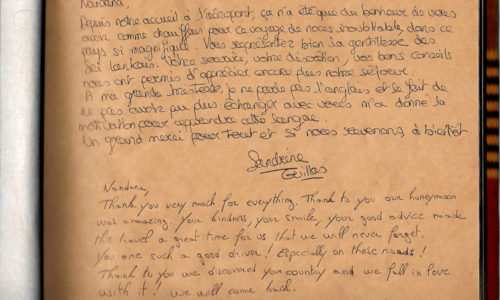 Nandana,
Depuis notre accueil à l'aéroport, ça n'a été que du bonheur de vous
avoir comme chauffeur pour ce voyage de noces inoubliable, dans ce
pays si magnifique. Vous représentez bien la gentillesse des
Sri Lankais. Votre sourire, votre discrétion, vos bons conseils
nous ont permis d'apprécier encore plus notre séjour.
A ma grande tristesse, je ne parle pas l'anglais et le fait de
ne pas avoir pu plus échanger avec vous m'a donné la
motivation pour apprendre cette langue.
Un grand merci pour tout et si nous revenons, à bientôt
Sandrine
Nandana,
Thank you very much for everything. Thank to you our honeymoon
was amazing. Your kindness, your smile, your good advice made
this travel a great time for us that we will never forget.
You are such a good driver! Especially on these roads!
Thank to you we discovered your country and we fall in love
with it! We will come back.